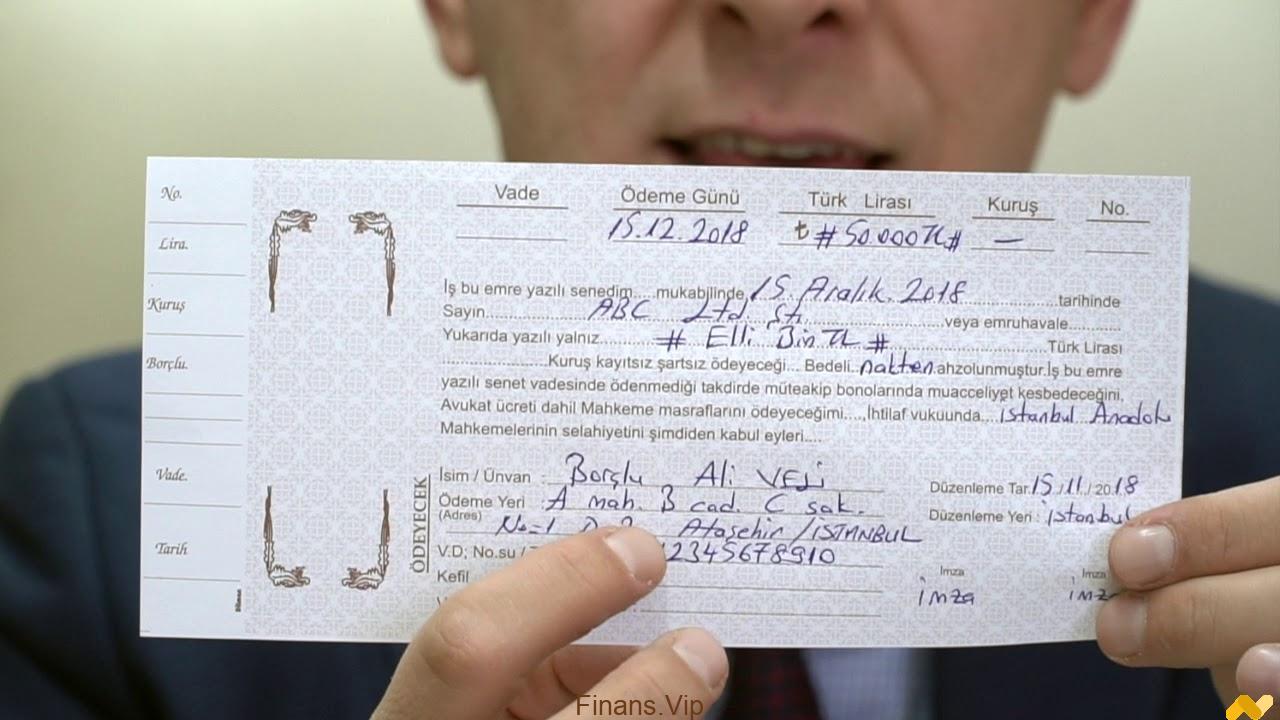 No.
Lira.
Kuruş
Borçlu.
Vade.
Tarih
Vade Ödeme Günü Türk Lirası Kuruş No.
15.12.2018 ₺ #50.000TL# —
İş bu emre yazılı senedim....mukabilinde 15. Aralık. 2018 tarihinde
Sayın ABC Ltd. Şti. veya emruhavale
Yukarıda yazılı yalnız # Elli Bin TL # Türk Lirası
Kuruş kayıtsız şartsız ödeyeceği... Bedeli nakten ahzolunmuştur.İş bu emre
yazılı senet vadesinde ödenmediği takdirde müteakip bonolarında muacceliyet kesbedeceğini,
Avukat ücreti dahil Mahkeme masraflarını ödeyeceğimi....,İhtilaf vukuunda istanbul Anadolu
Mahkemelerinin selahiyetini şimdiden kabul eyleri....
ÖDEYECEK
İsim / Ünvan : Borçlu Ali VELİ
Ödeme Yeri : A mah. B cad. C sok.
(Adres) No=1 Ataşehir/İSTANBUL
V.D; No.su / 12345678910
Kefil
Düzenleme Tar. 15/11/2018
Düzenleme Yeri : istanbul
İmza İmza
imza imza
Finans.Vip